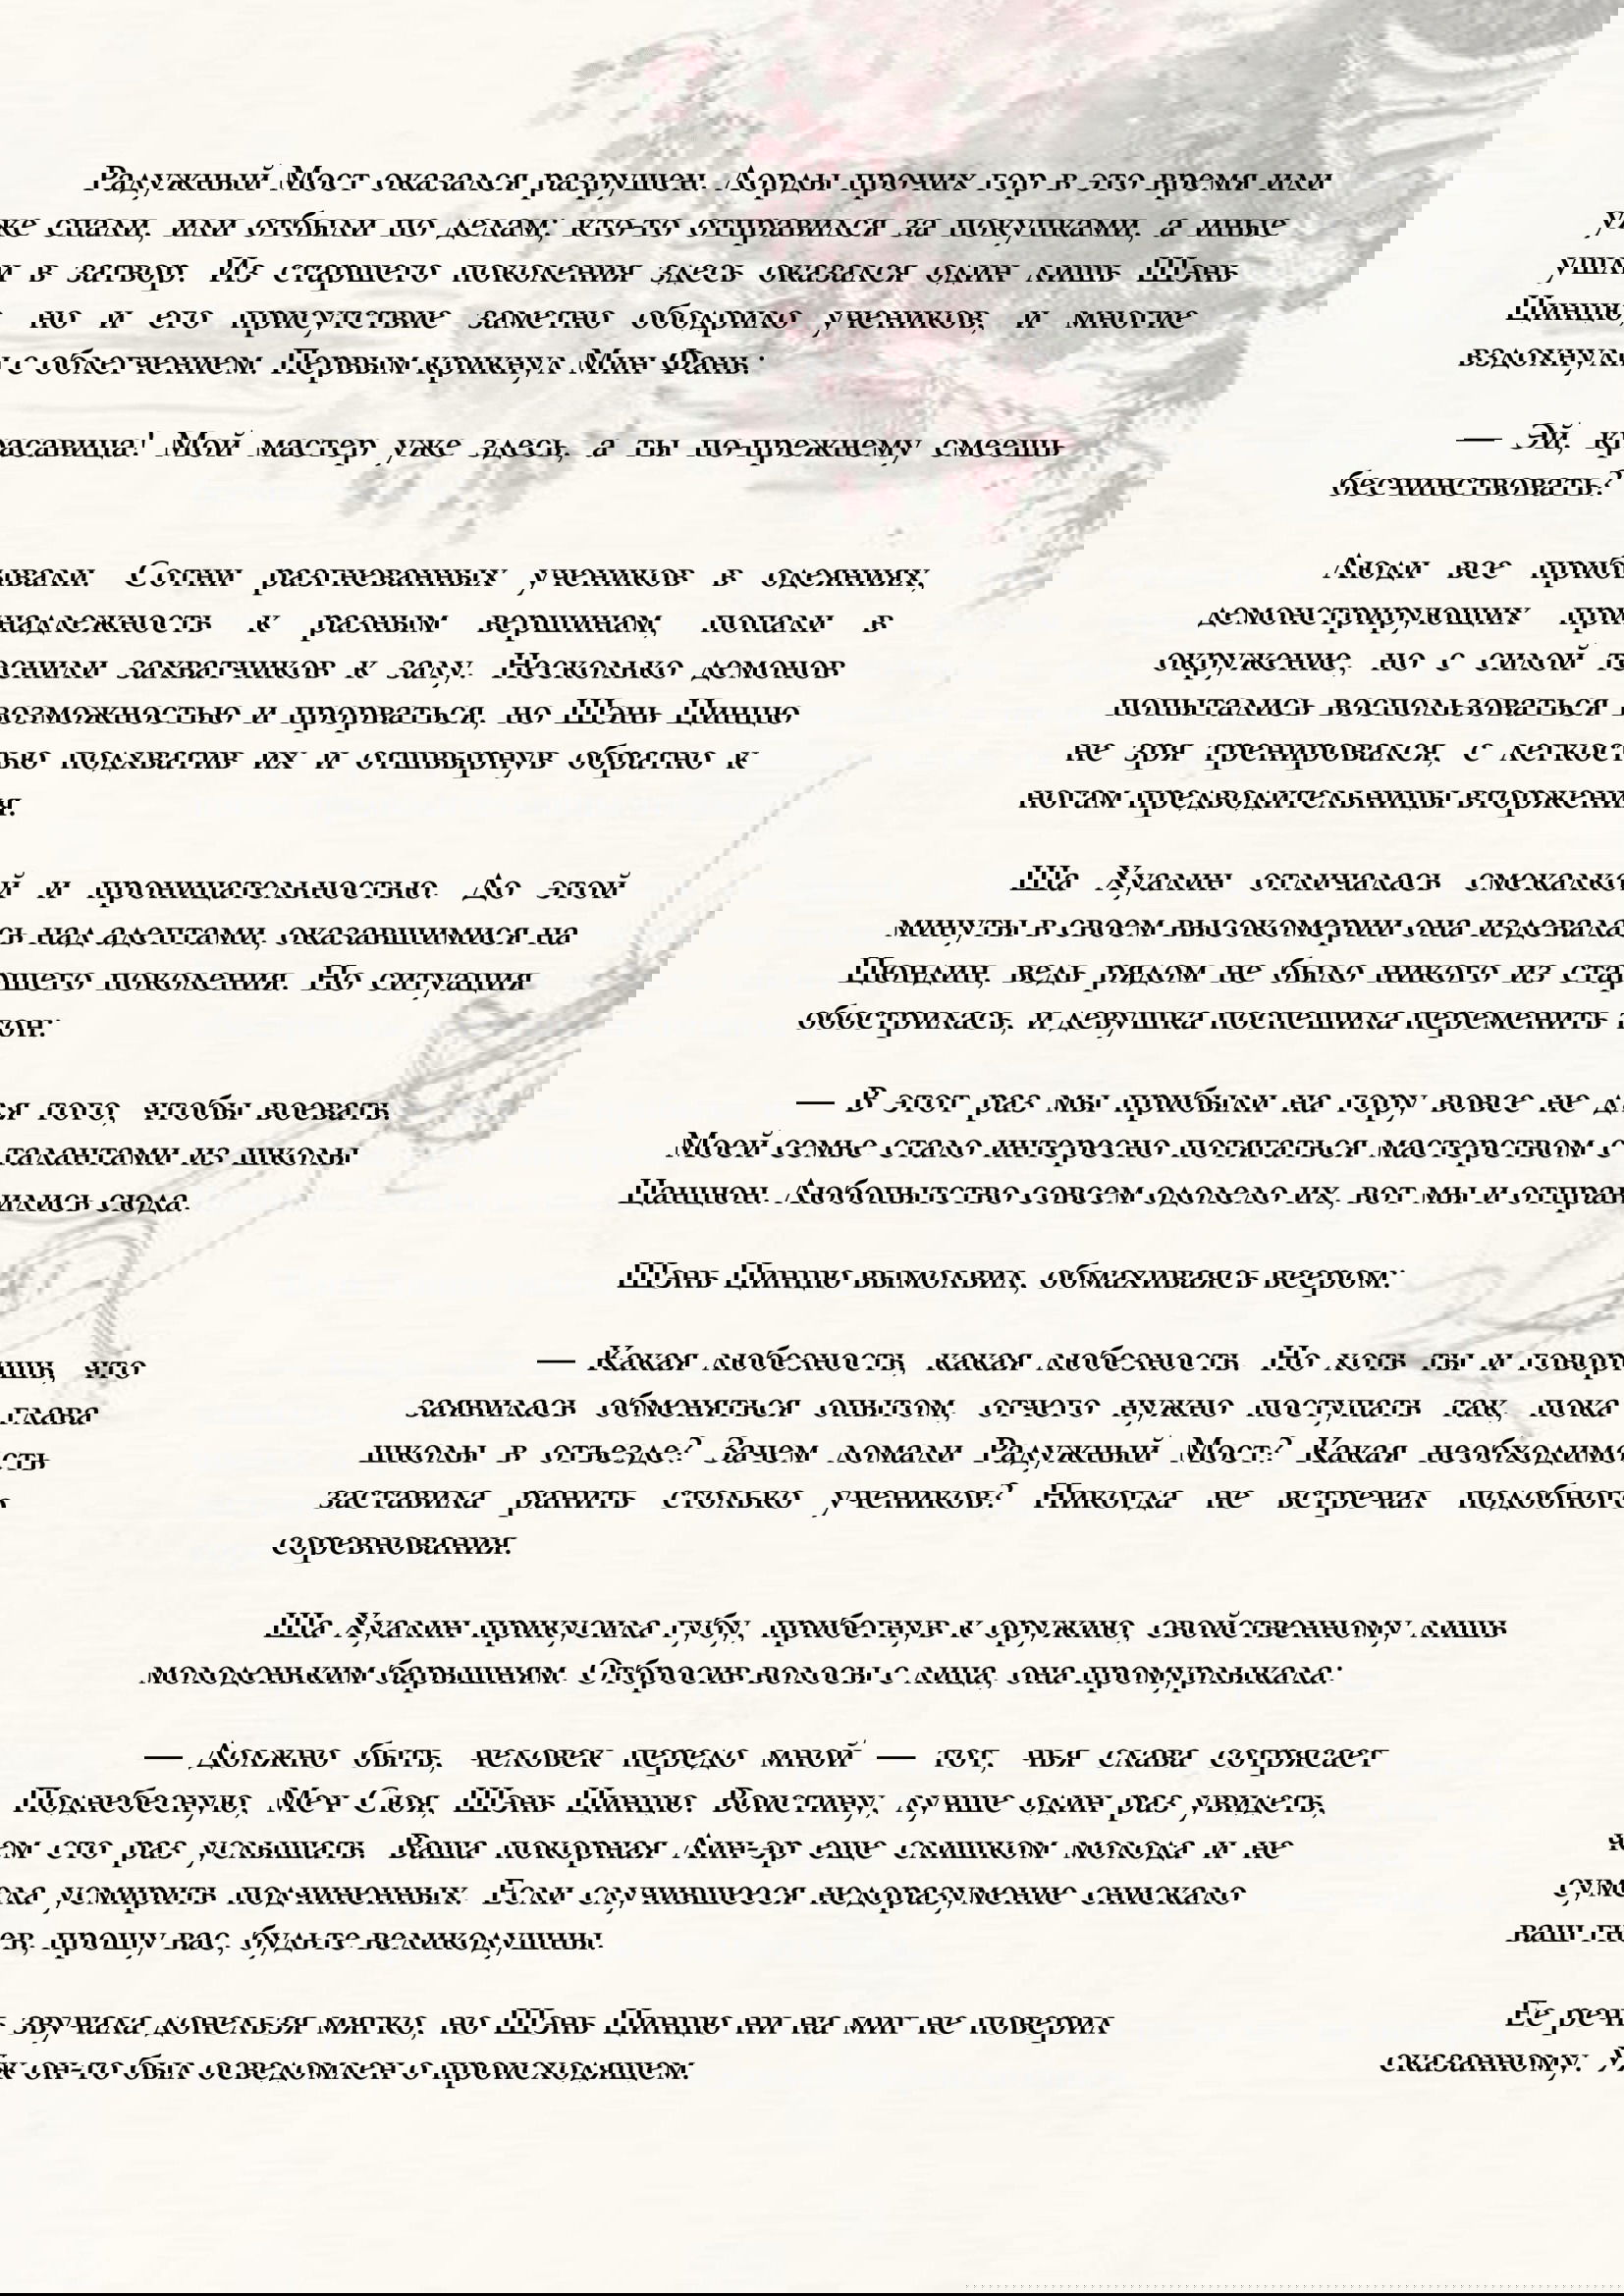 Радужный Мост оказался разрушен. Лорды прочих гор в это время или
уже спали, или отбыли по делам; кто-то отправился за покупками, а иные
ушли в затвор. Из старшего поколения здесь оказался один лишь Шэнь
Цинцю, но и его присутствие заметно ободрило учеников, и многие
вздохнули с облегчением. Первым крикнул Мин Фань:
— Эй, красавица! Мой мастер уже здесь, а ты по-прежнему смеешь
бесчинствовать?
Люди все прибывали. Сотни разгневанных учеников в одеяниях,
демонстрирующих принадлежность к разным вершинам, попали в
окружение, но с силой теснили захватчиков к залу. Несколько демонов
попытались воспользоваться возможностью и прорваться, но Шэнь Цинцю
не зря тренировался, с легкостью подхватив их и отшвырнув обратно к
ногам предводительницы вторжения.
Ша Хуалин отличалась смекалкой и проницательностью. До этой
минуты в своем высокомерии она издевалась над адептами, оказавшимися на
Цюндин, ведь рядом не было никого из старшего поколения. Но ситуация
обострилась, и девушка поспешила переменить тон:
— В этот раз мы прибыли на гору вовсе не для того, чтобы воевать.
Моей семье стало интересно потягаться мастерством с талантами из школы
Цанцюн. Любопытство совсем одолело их, вот мы и отправились сюда.
Шэнь Цинцю вымолвил, обмахиваясь веером:
— Какая любезность, какая любезность. Но хоть ты и говоришь, что
заявилась обменяться опытом, отчего нужно поступать так, пока глава
школы в отъезде? Зачем ломали Радужный Мост? Какая необходимость
заставила ранить столько учеников? Никогда не встречал подобного
соревнования.
Ша Хуалин прикусила губу, прибегнув к оружию, свойственному лишь
молоденьким барышням. Отбросив волосы с лица, она промурлыкала:
— Должно быть, человек передо мной — тот, чья слава сотрясает
Поднебесную, Меч Сюя, Шэнь Цинцю. Воистину, лучше один раз увидеть,
чем сто раз услышать. Ваша покорная Лин-эр еще слишком молода и не
сумела усмирить подчиненных. Если случившееся недоразумение снискало
ваш гнев, прошу вас, будьте великодушны.
Ее речь звучала донельзя мягко, но Шэнь Цинцю ни на миг не поверил
сказанному. Уж он-то был осведомлен о происходящем.